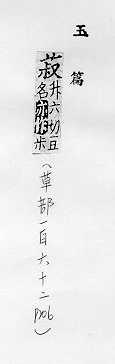 玉篇
菽
升六切
名
(草部一百六十二 P06)